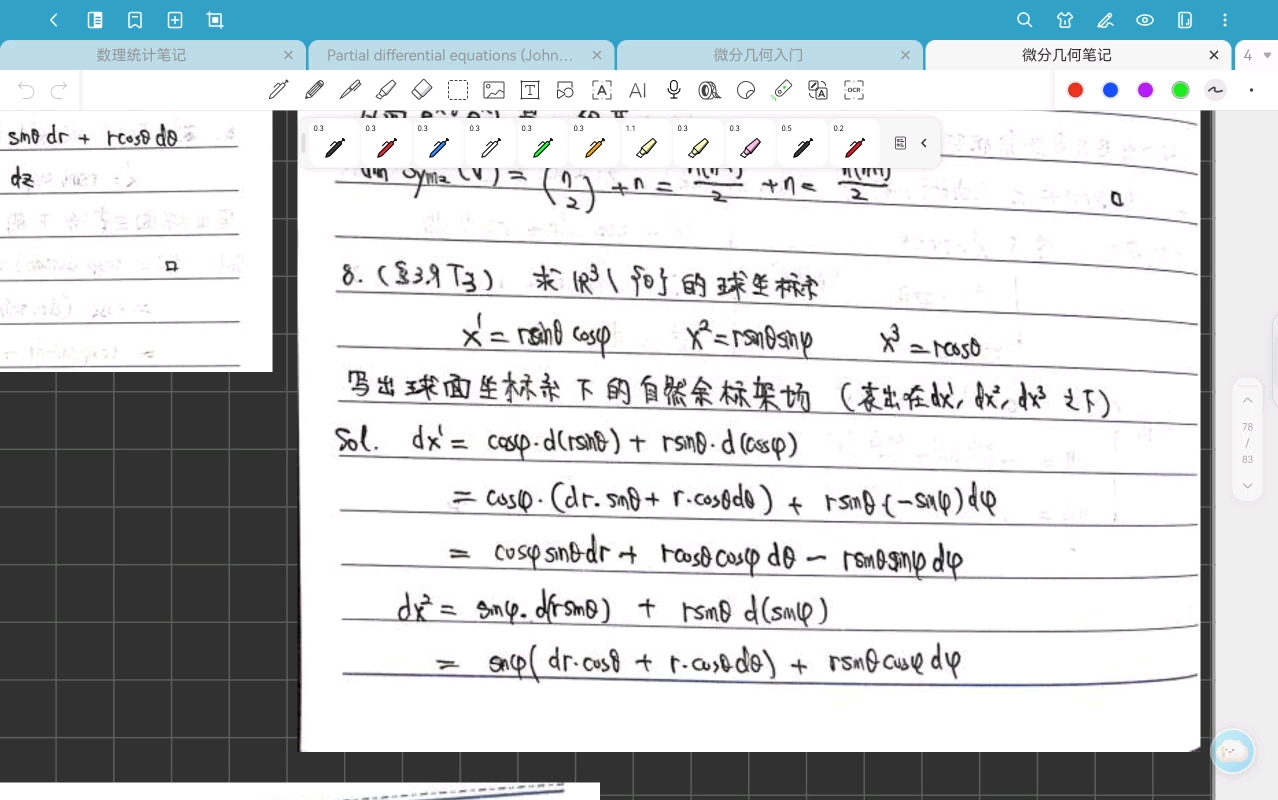 数理统计笔记
Partial differential equations (John...
微分几何入门
微分几何笔记
4
AI
OCR
0.3 0.3 0.3 0.3 0.3 0.3 1.1 0.3 0.3 0.5 0.2
sinθ dr + rcosθ dθ
dz
□
Sym₂(V) = (n 2) + n = n(n-1)/2 + n = n(n+1)/2 □
8. (§3.9 T3) 求 ℝ³ \ {0} 的球坐标系
x¹ = rsinθ cosφ x² = rsinθsinφ x³ = rcosθ
写出球面坐标系下的自然余标架场 (表出在dx¹, dx², dx³ 之下)
Sol. dx¹ = cosφ·d(rsinθ) + rsinθ·d(cosφ)
= cosφ·(dr·sinθ + r·cosθdθ) + rsinθ·(-sinφ)dφ
= cosφsinθdr + rcosθcosφ dθ - rsinθsinφ dφ
dx² = sinφ·d(rsinθ) + rsinθ d(sinφ)
= sinφ(dr·cosθ + r·cosθdθ) + rsinθcosφdφ
78
/
83